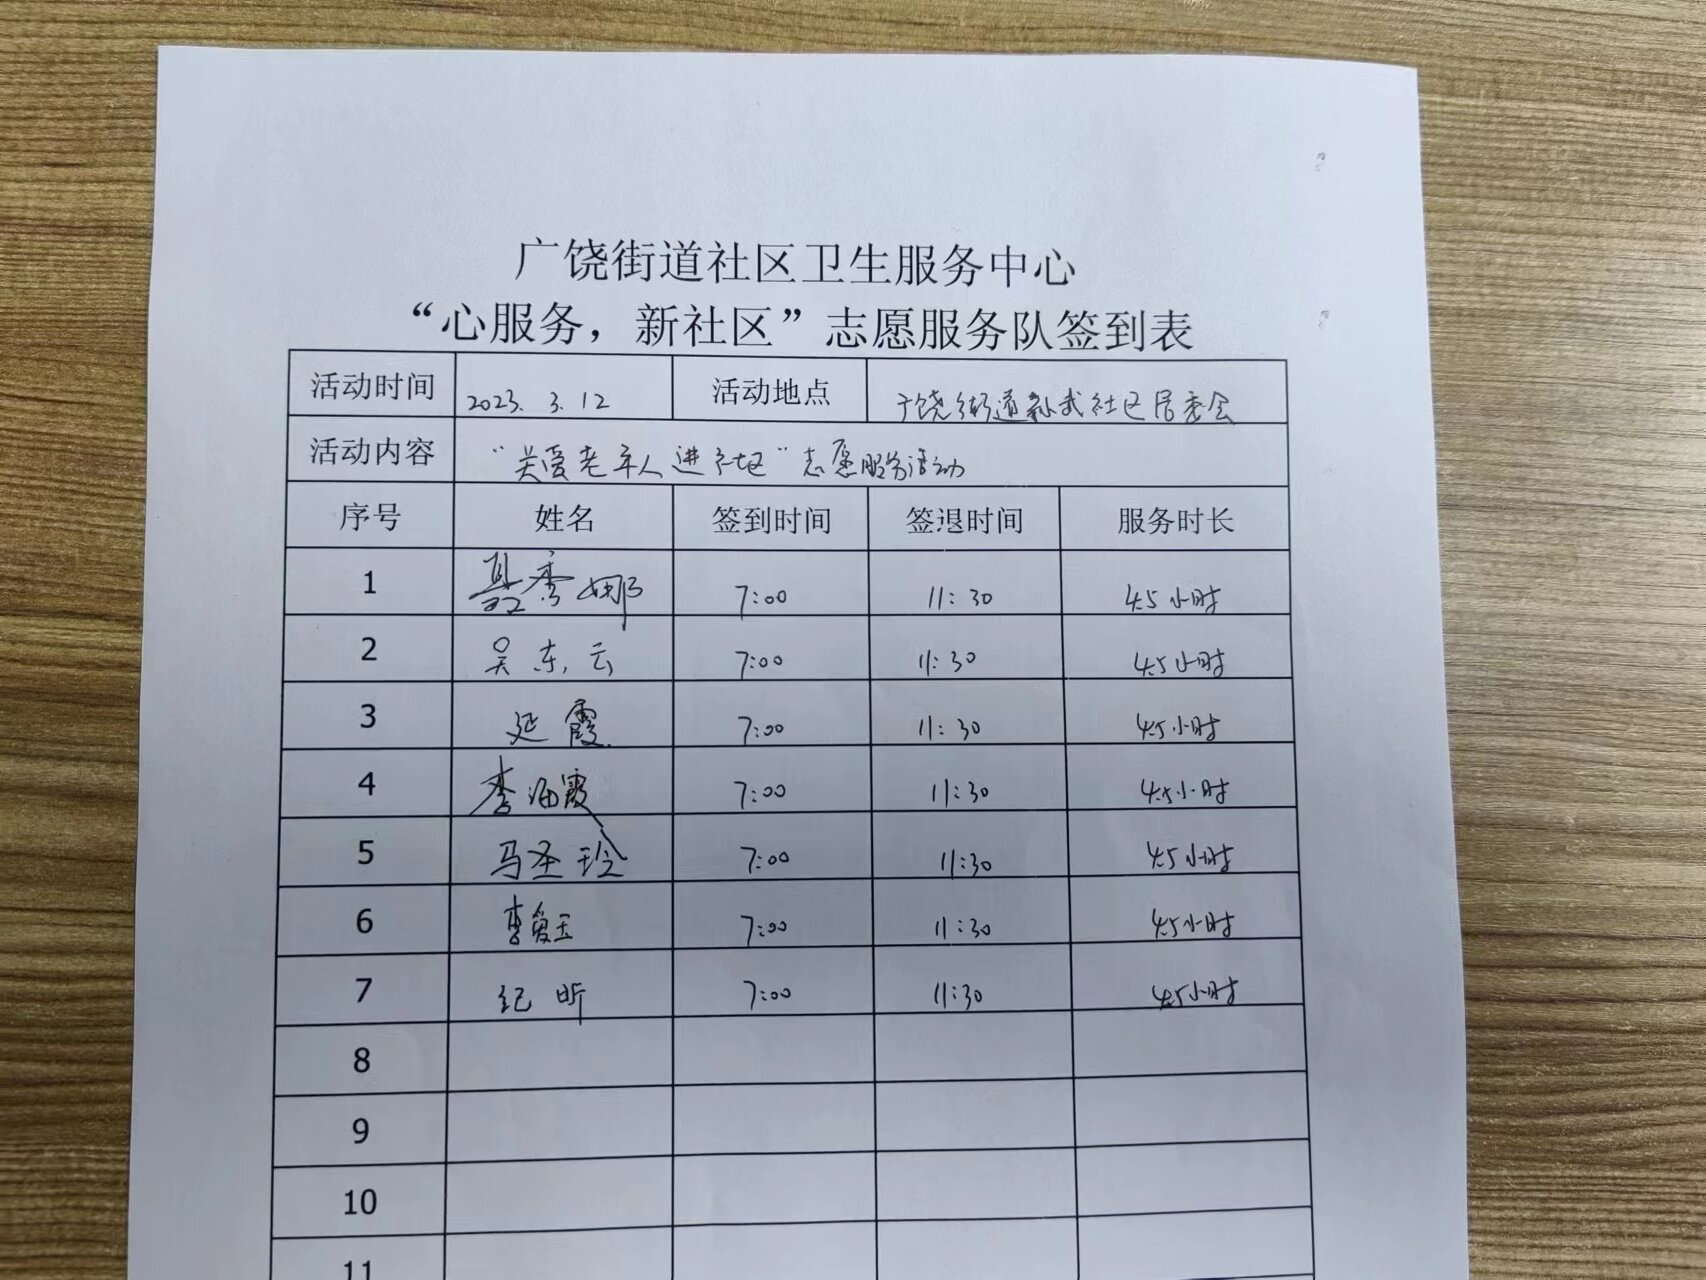 广饶街道社区卫生服务中心
“心服务，新社区”志愿服务队签到表
活动时间 2023. 3. 12 活动地点 广饶街道孙武社区居委会
活动内容 “关爱老年人进社区”志愿服务活动
序号 姓名 签到时间 签退时间 服务时长
1 聂秀娜 7:00 11:30 4.5小时
2 吴东云 7:00 11:30 4.5小时
3 延霞 7:00 11:30 4.5小时
4 李海霞 7:00 11:30 4.5小时
5 马圣玲 7:00 11:30 4.5小时
6 李 玉 7:00 11:30 4.5小时
7 纪昕 7:00 11:30 4.5小时
8
9
10
11